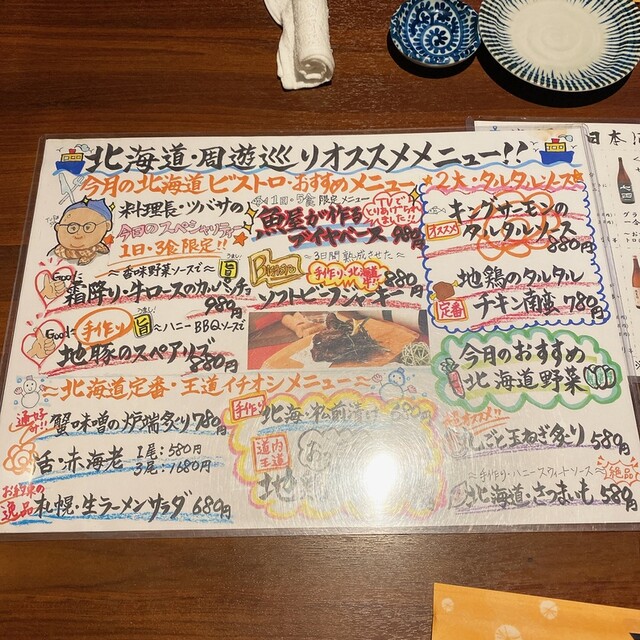 北海道・周遊巡りオススメメニュー!!
今月の北海道ビストロ・おすすめメニュー
料理長・ツバサの
今日のスペシャリテ
1日・3食限定!!
Good!
〜香味野菜ソースで〜
旨
霜降り・牛ロースのカルパッチョ
980円
Good!
手作り
旨
〜ハニーBBQソースで
地豚のスペアリブ
880円
1日・5食 限定メニュー
TVで
とりあげて
頂きました!
魚屋が作る
ダイヤバース 980円
〜3日間熟成させた〜
手作り・北海道!!
880円
ソフトビーフジャーキー
2大・タルタルソース
キングサーモンの
オススメ
タルタルソース
880円
地鶏のタルタル
定番
チキン南蛮 780円
今月のおすすめ
北海道野菜
〜北海道定番・王道イチオシメニュー〜
通好み!!
蟹味噌の炉端炙り780円
活・赤海老
1尾:580円
3尾:1680円
お約束の
逸品
札幌・生ラーメンサラダ 680円
手作り
北海・松前漬け 680円
道内
王道
地
オススメ!!
丸ごと玉ねぎ炙り 580円
〜手作り・ハニースウィートソース〜
絶品
北海道・さつまいも 580円
日本酒